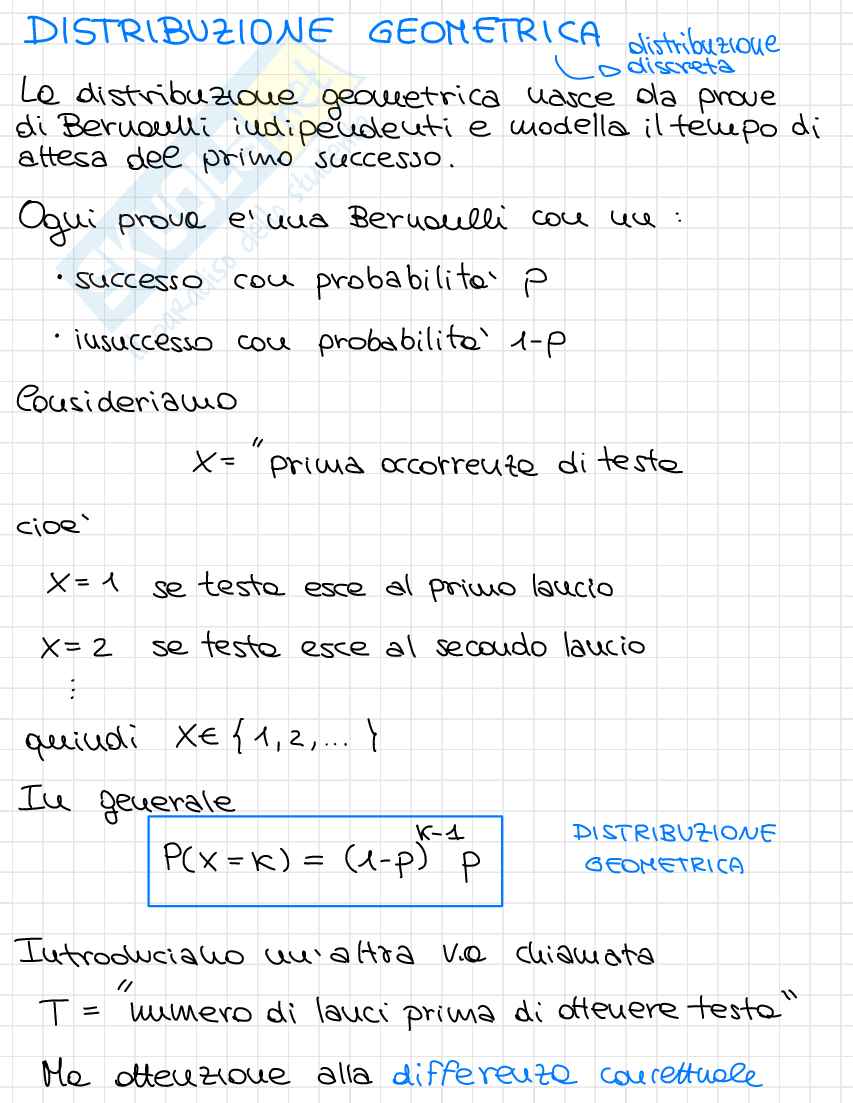 DISTRIBUZIONE GEOMETRICA
distribuzione
discreta
La distribuzione geometrica nasce da prove
di Bernoulli indipendenti e modella il tempo di
attesa del primo successo.
Ogni prova e' una Bernoulli con un :
• successo con probabilita' p
• insuccesso con probabilita' 1-p
Consideriamo
X = "prima occorrenza di testa
cioe'
X = 1 se testa esce al primo lancio
X = 2 se testa esce al secondo lancio
⋮
quindi X ∈ {1, 2, ... }
In generale
P(X = K) = (1-p)^{K-1} p
DISTRIBUZIONE
GEOMETRICA
Introduciamo un'altra v.a chiamata
T = "numero di lanci prima di ottenere testa"
Ma attenzione alla differenza concettuale